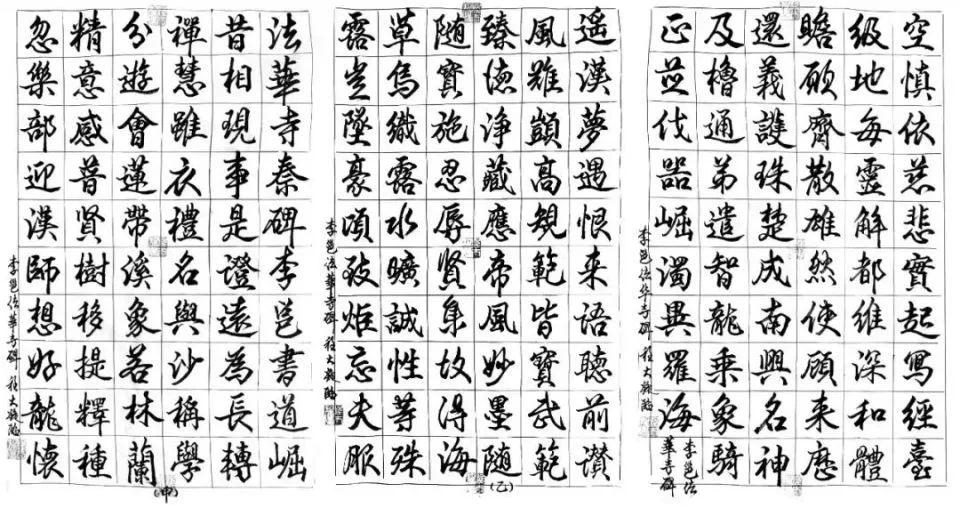 法華寺秦碑李邕書道崛
昔相現事是證遠為長轉
禪慧雖衣禮名與沙稱學
分遊會蓮帶溪象若林蘭
精意感普賢樹移提釋種
忽樂部迎漢師想好龍懷
李邕法華寺碑 程大臨
遥漢夢遇恨来語聽前讃
風雖顗高規範皆寶武範
臻德浄藏應帝風妙墨随
随寶施忍辱賢身故得海
草鳥織露水曠誠性等殊
露豈墜豪頃致炬忘夫服
李邕法華寺碑 程大臨
(乙)
空慎依慈悲實起寫經臺
级地每靈解都維深和體
瞻願齊散雄然使顧来歷
還義護珠楚成南興名神
及櫓通弟遣智龍乘象騎
正並伐器崛濁異羅海
李邕法
華寺碑
李邕法华寺碑 程大臨